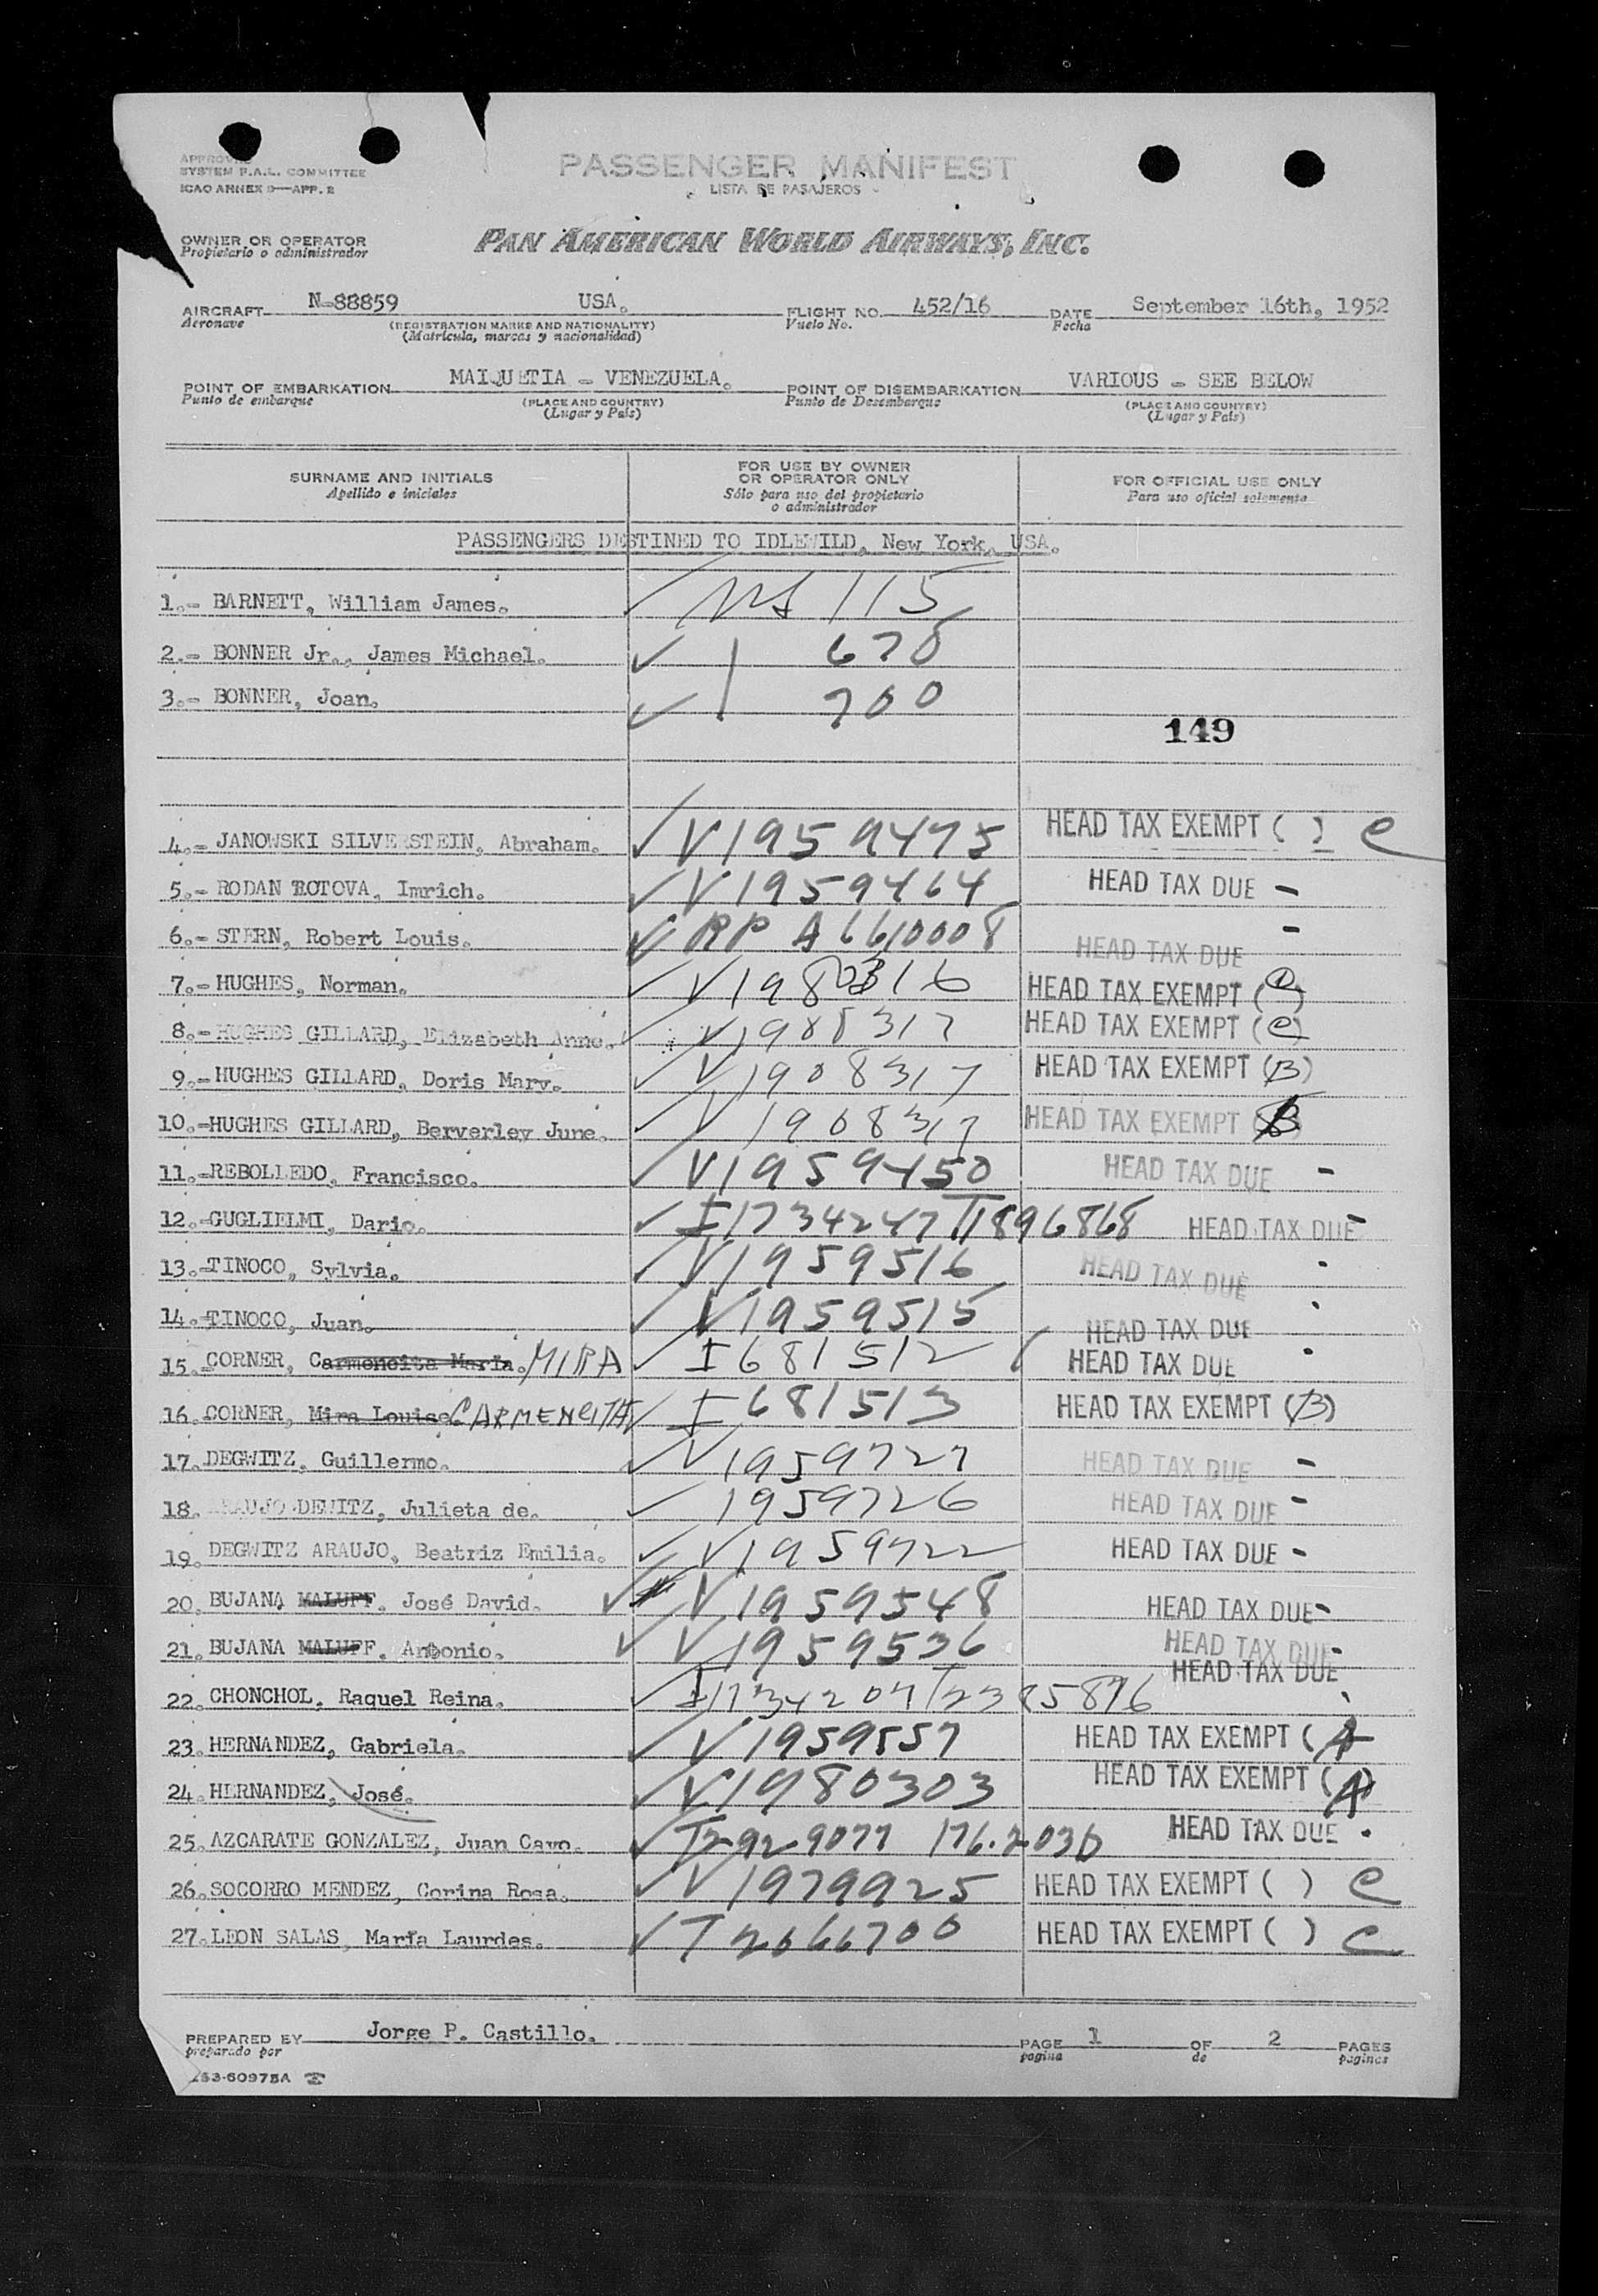 APPROVED
SYSTEM P.A.L. COMMITTEE
ICAO ANNEX 9—APP. 2
PASSENGER MANIFEST
LISTA DE PASAJEROS
OWNER OR OPERATOR
Propietario o administrador
PAN AMERICAN WORLD AIRWAYS, INC.
AIRCRAFT N-88859 USA. FLIGHT NO. 452/16 DATE September 16th, 1952
Aeronave (REGISTRATION MARKS AND NATIONALITY) Vuelo No. Fecha
(Matrícula, marcas y nacionalidad)
POINT OF EMBARKATION MAIQUETIA - VENEZUELA. POINT OF DISEMBARKATION VARIOUS - SEE BELOW
Punto de embarque (PLACE AND COUNTRY) Punto de Desembarque (PLACE AND COUNTRY)
(Lugar y País) (Lugar y País)
SURNAME AND INITIALS
Apellido e iniciales
FOR USE BY OWNER
OR OPERATOR ONLY
Sólo para uso del propietario
o administrador
FOR OFFICIAL USE ONLY
Para uso oficial solamente
PASSENGERS DESTINED TO IDLEWILD, New York, USA.
1.- BARNETT, William James. 115
2.- BONNER Jr., James Michael. 678
3.- BONNER, Joan. 700
149
4.- JANOWSKI SILVERSTEIN, Abraham. V1959475 HEAD TAX EXEMPT ( ) e
5.- RODAN ROTOVA, Imrich. V1959464 HEAD TAX DUE -
6.- STERN, Robert Louis. RP A6610008 HEAD TAX DUE -
7.- HUGHES, Norman. HEAD TAX EXEMPT (e)
8.- HUGHES GILLARD, Elizabeth Anne. V1908317 HEAD TAX EXEMPT (e)
9.- HUGHES GILLARD, Doris Mary. V1908317 HEAD TAX EXEMPT (B)
10.- HUGHES GILLARD, Berverley June. V1908317 HEAD TAX EXEMPT (B)
11.- REBOLLEDO, Francisco. V1959450 HEAD TAX DUE -
12.- GUGLIELMI, Dario. I1734247 T1896868 HEAD TAX DUE -
13.- TINOCO, Sylvia. V1959516 HEAD TAX DUE
14.- TINOCO, Juan. V1959515 HEAD TAX DUE
15.- CORNER, Carmencita Maria. MIRA I681512 HEAD TAX DUE
16. CORNER, Mira Louise CARMENCITA I681513 HEAD TAX EXEMPT (B)
17. DEGWITZ, Guillermo. V1959727 HEAD TAX DUE -
18. ARAUJO DEWITZ, Julieta de. 1959726 HEAD TAX DUE -
19. DEGWITZ ARAUJO, Beatriz Emilia. V1959722 HEAD TAX DUE -
20. BUJANA MALUFF, José David. V1959548 HEAD TAX DUE -
21. BUJANA MALUFF, Antonio. V1959536 HEAD TAX DUE -
22. CHONCHOL, Raquel Reina. I1734207 T2385876 HEAD TAX DUE
23. HERNANDEZ, Gabriela. V1959557 HEAD TAX EXEMPT (A
24. HERNANDEZ, José. V1980303 HEAD TAX EXEMPT (A)
25. AZCARATE GONZALEZ, Juan Cayo. T2929077 HEAD TAX DUE
26. SOCORRO MENDEZ, Corina Rosa. V1979925 HEAD TAX EXEMPT ( ) e
27. LEON SALAS, María Lourdes. T2666700 HEAD TAX EXEMPT ( ) C
PREPARED BY Jorge P. Castillo. PAGE 1 OF 2 PAGES
preparado por pagina de paginas
153-60975A